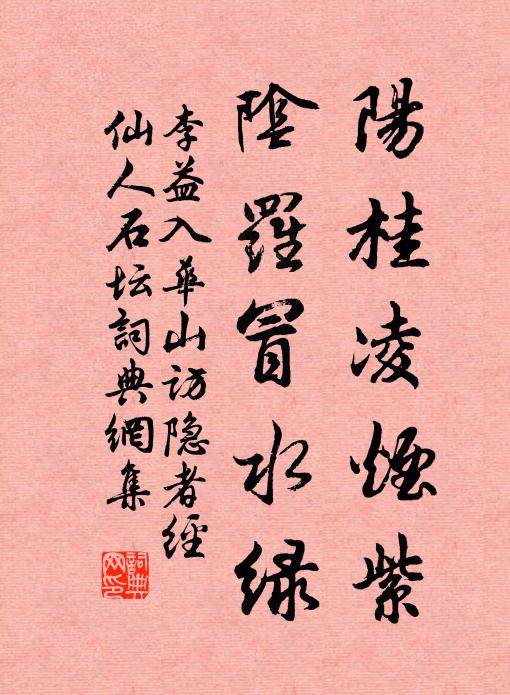 陽桂凌煙紫
陰羅冒水绿
李益入華山访隐者經
仙人石坛詞典網集
詞典网印